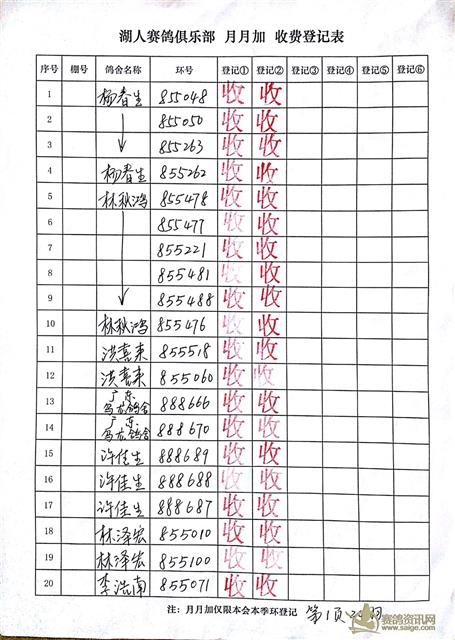 湖人赛鸽俱乐部 月月加 收费登记表
序号 棚号 鸽舍名称 环号 登记① 登记② 登记③ 登记④ 登记⑤ 登记⑥
1 杨春生 855048 收 收
2 855050 收 收
3 855263 收 收
4 杨春生 855262 收 收
5 林秋鸿 855478 收 收
6 855477 收 收
7 855221 收 收
8 855481 收 收
9 855488 收 收
10 林秋鸿 855476 收 收
11 洪喜来 855518 收 收
12 洪喜来 855060 收 收
13 广东乌龙鸽舍 888666 收 收
14 广东乌龙鸽舍 888670 收 收
15 许佳生 888689 收 收
16 许佳生 888688 收 收
17 许佳生 888687 收 收
18 林泽宏 855010 收 收
19 林泽宏 855100 收 收
20 李浩南 855071 收 收
注：月月加仅限本会本季环登记 第1页
赛鸽资讯网
www.saige.com